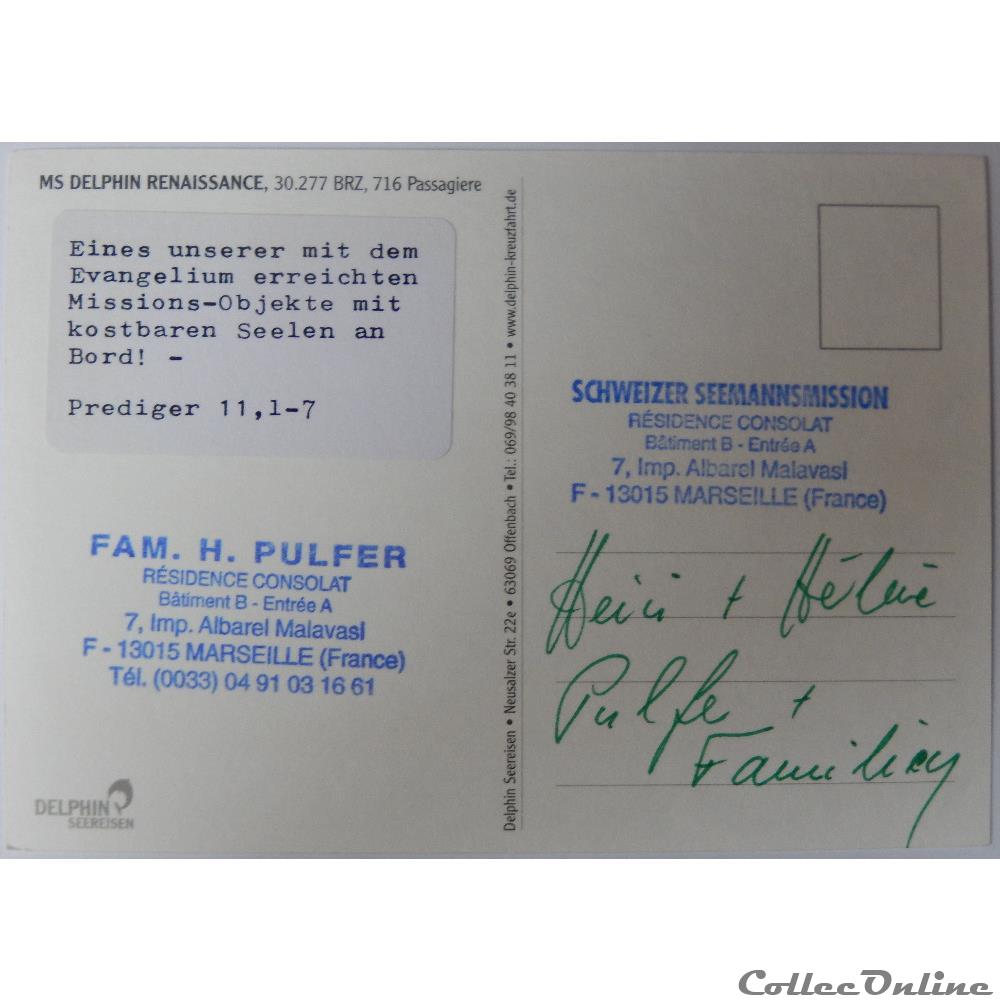 MS DELPHIN RENAISSANCE, 30.277 BRZ, 716 Passagiere
Eines unserer mit dem
Evangelium erreichten
Missions-Objekte mit
kostbaren Seelen an
Bord! -
Prediger 11,1-7
FAM. H. PULFER
RÉSIDENCE CONSOLAT
Bâtiment B - Entrée A
7, Imp. Albarel Malavasi
F - 13015 MARSEILLE (France)
Tél. (0033) 04 91 03 16 61
DELPHIN
SEEREISEN
Delphin Seereisen • Neusalzer Str. 22e • 63069 Offenbach • Tel.: 069/98 40 38 11 • www.delphin-kreuzfahrt.de
SCHWEIZER SEEMANNSMISSION
RÉSIDENCE CONSOLAT
Bâtiment B - Entrée A
7, Imp. Albarel Malavasi
F - 13015 MARSEILLE (France)
Heini + Hélène
Pulfer +
Familien
CollecOnline